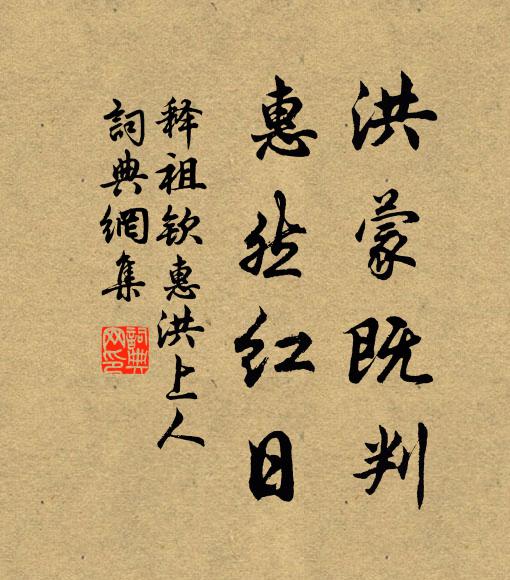 洪蒙既判
惠然红日
释祖钦惠洪上人
詞典網集
詞典网印